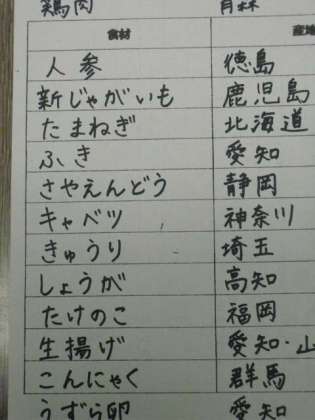 鶏肉 青森
食材 産地
人参 徳島
新じゃがいも 鹿児島
たまねぎ 北海道
ふき 愛知
さやえんどう 静岡
キャベツ 神奈川
きゅうり 埼玉
しょうが 高知
たけのこ 福岡
生揚げ 愛知・山
こんにゃく 群馬
うずら卵 愛知